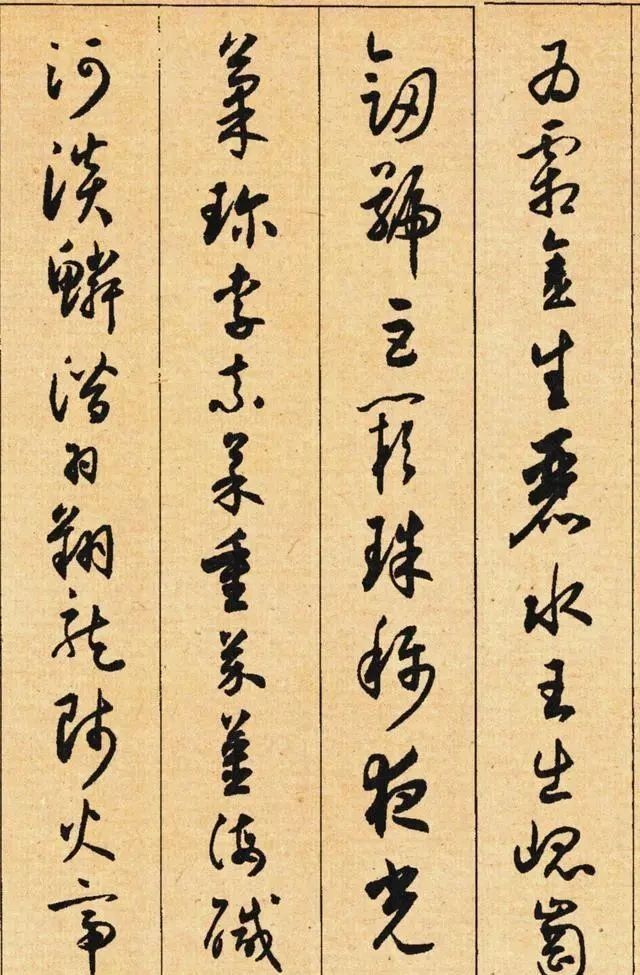 為霜金生麗水玉出崐崗
劒號巨闕珠稱夜光
菓珍李柰菜重芥薑海醎
河淡鱗潛羽翔龍師火帝